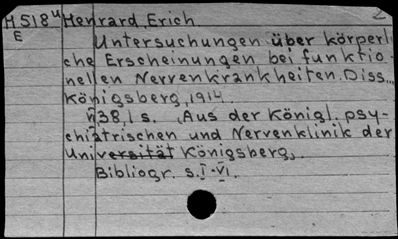 H518u Henrard, Erich. 2
E Untersuchungen über körperli
che Erscheinungen bei funktio-
nellen Nervenkrankheiten. Diss.,
Königsberg, 1914.
38,1 s. (Aus der Königl. psy-
chiatrischen und Nervenklinik der
Universität Königsberg,
Bibliogr. s. I-VI.